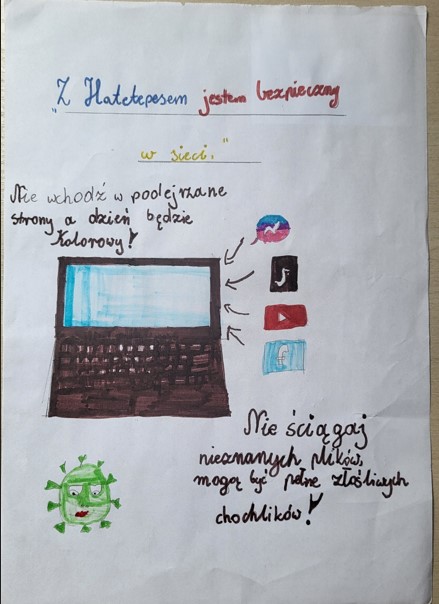 "Z Hatetepesem jestem bezpieczny
w sieci."
Nie wchodź w podejrzane
strony a dzień będzie
kolorowy!
Nie ściągaj
nieznanych plików,
mogą być pełne złośliwych
chochlików!